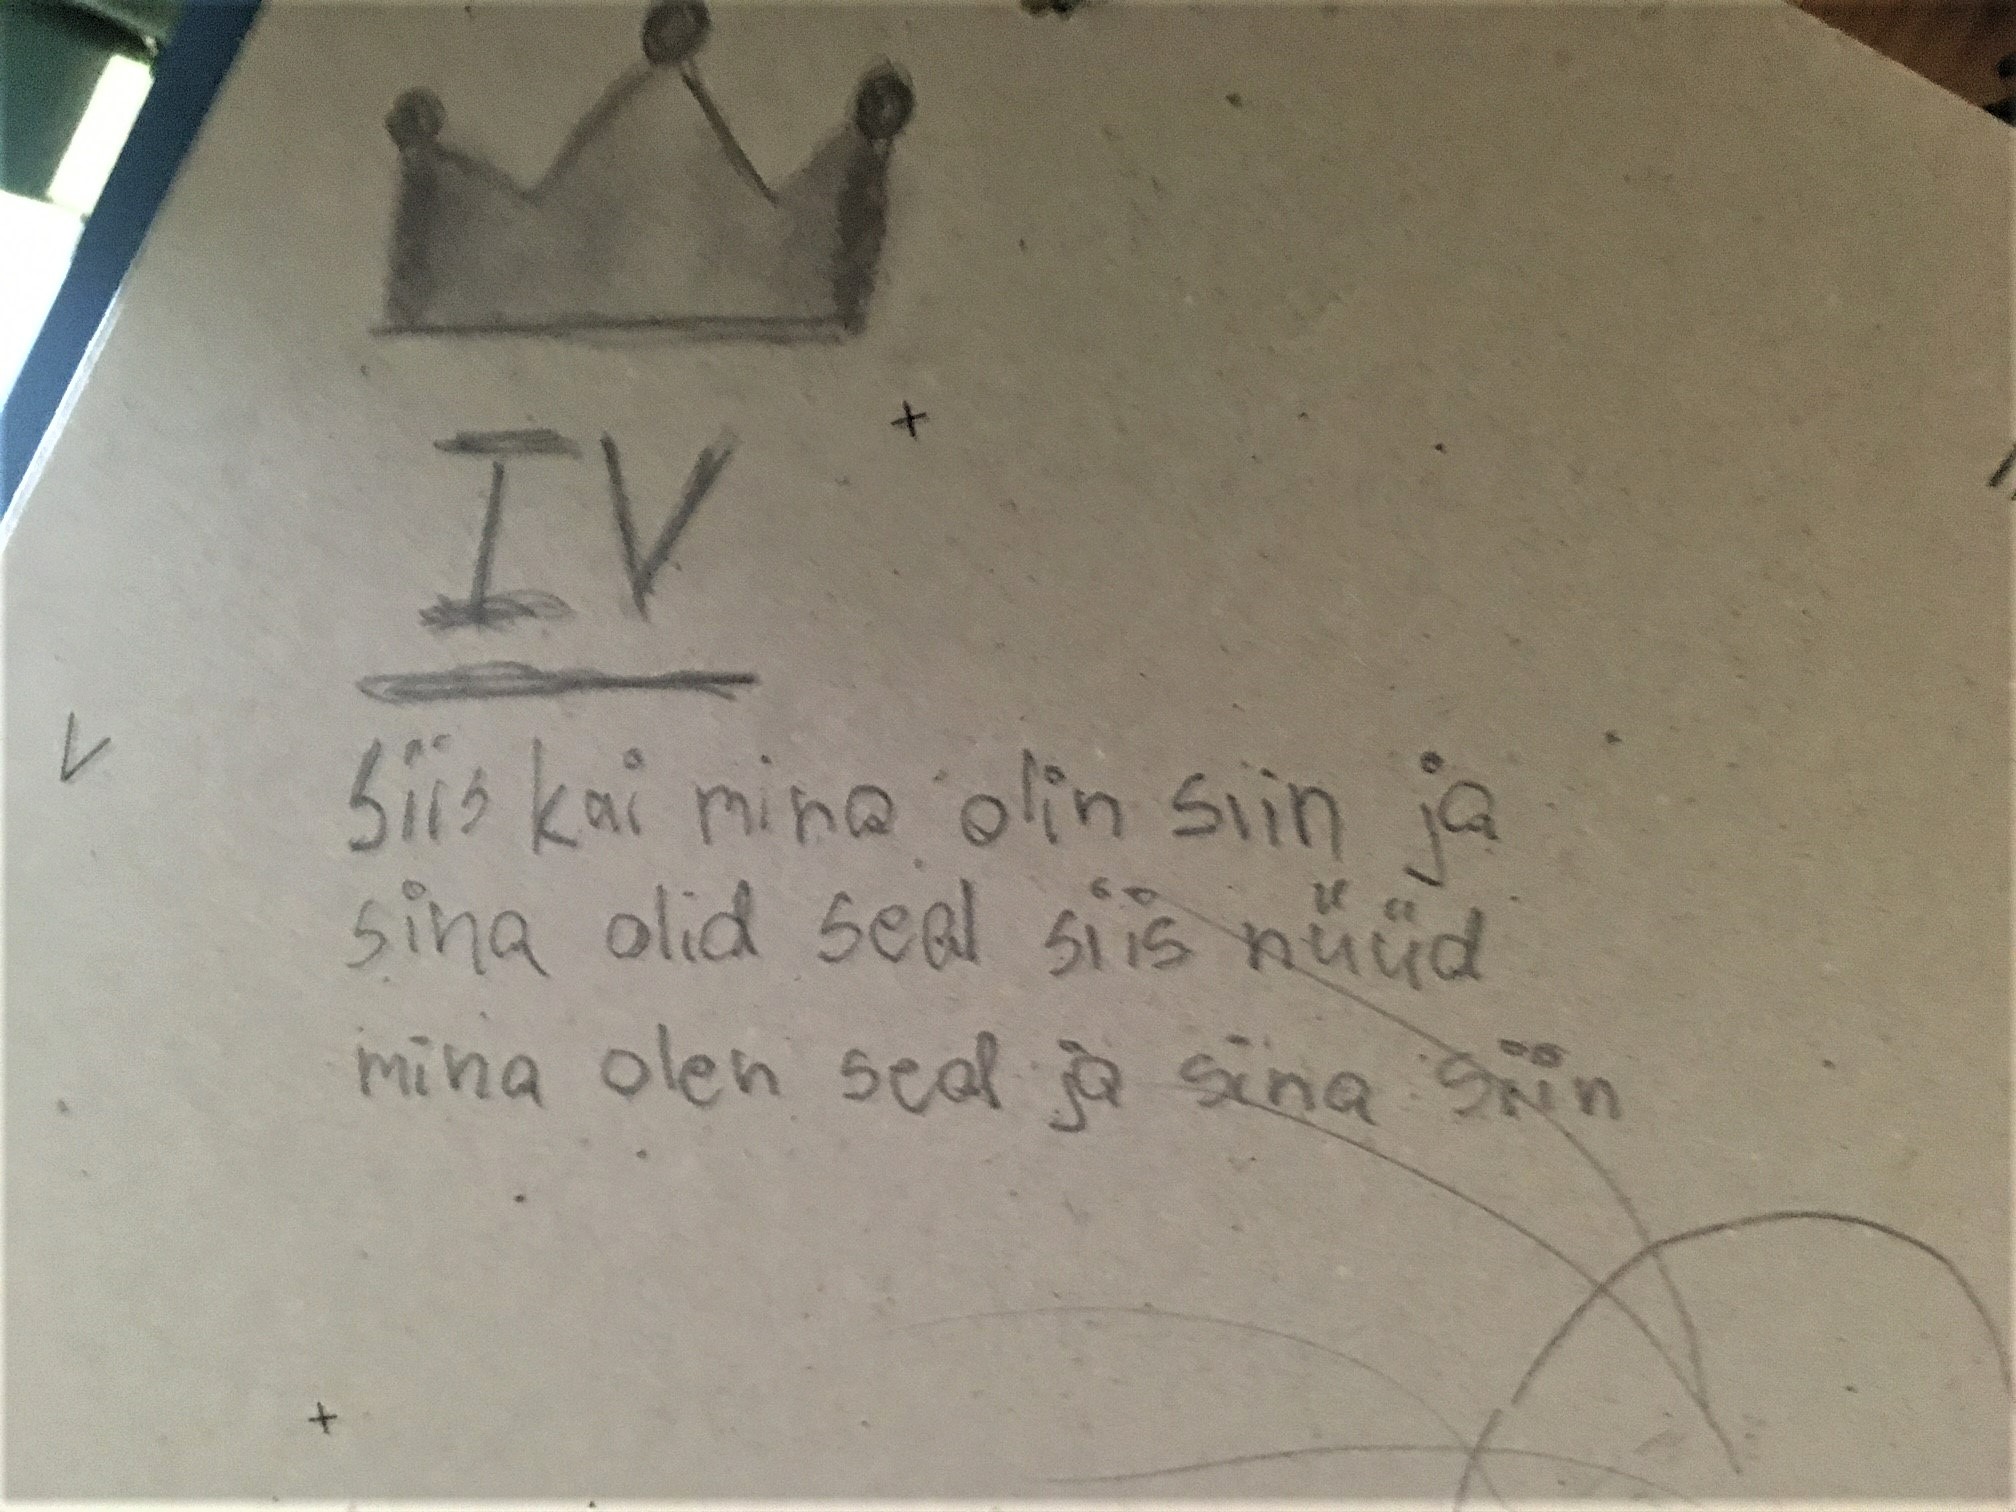 IV
V
siis kai mina olin siin ja
sina olid seal siis nüüd
mina olen seal ja sina siin